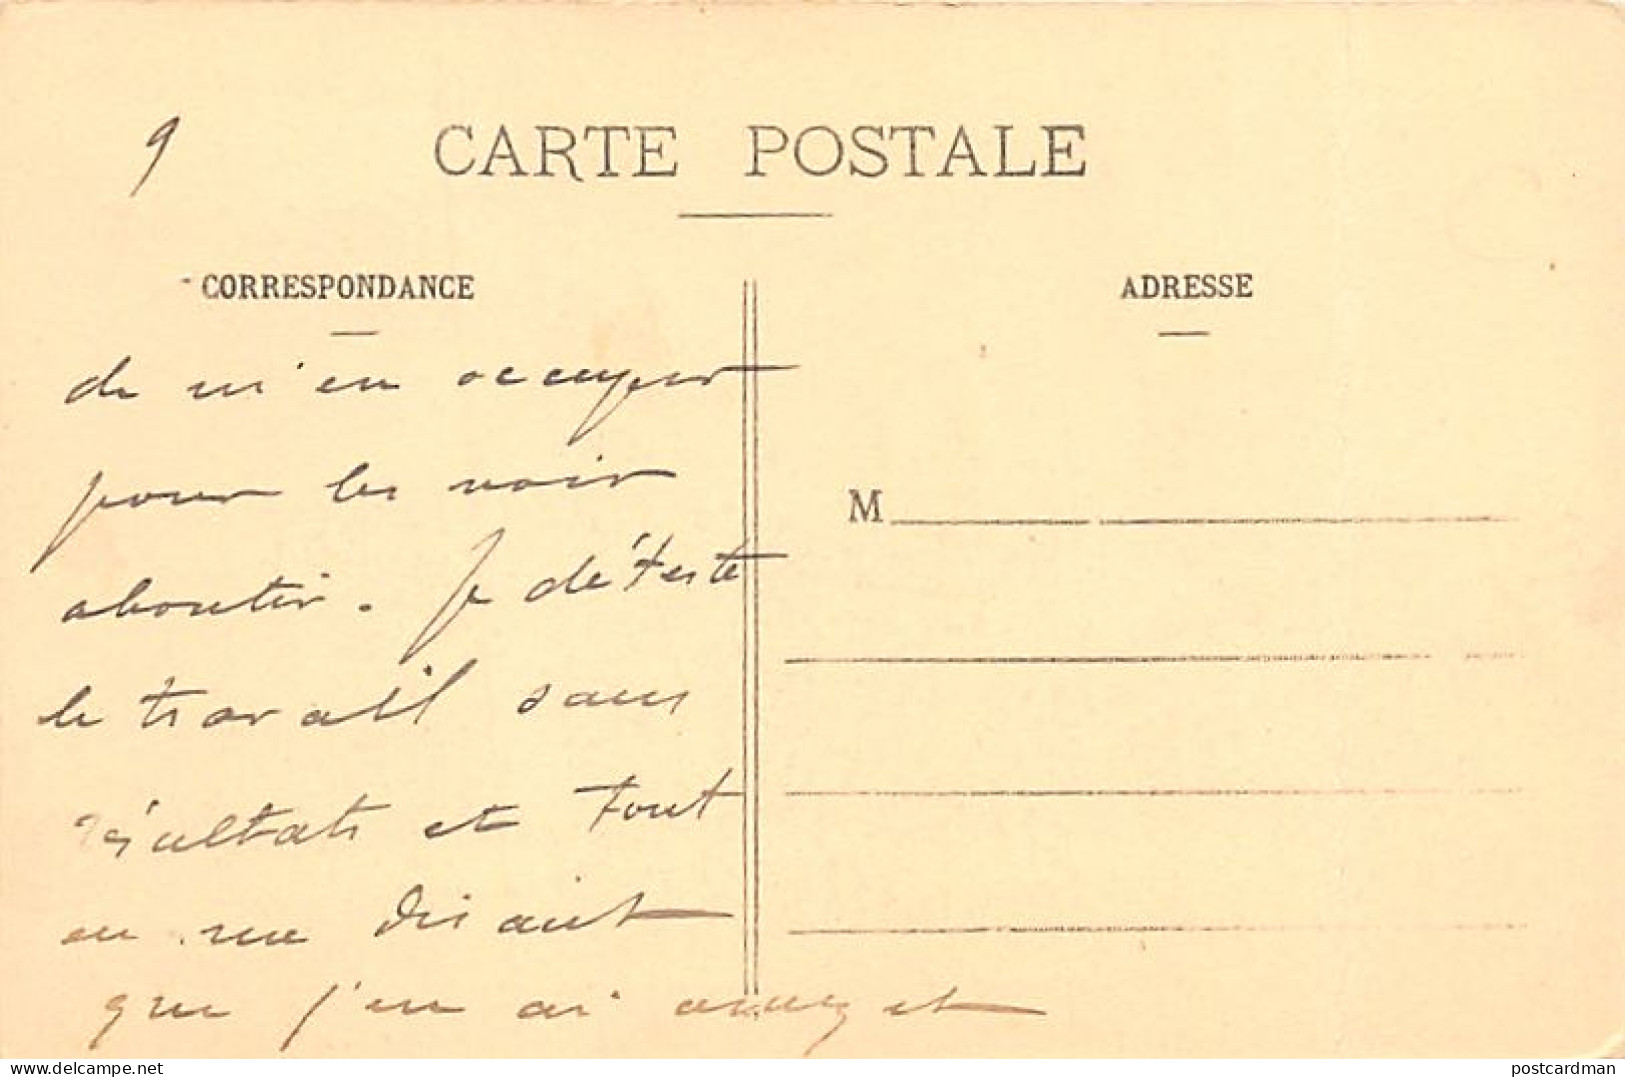 9
CARTE POSTALE
CORRESPONDANCE
ADRESSE
de m'en occuper
pour les voir
aboutir. Je déteste
le travail sans
résultats et tout
en me disant
que j'en ai assez et
M
delcampe.net
postcardman